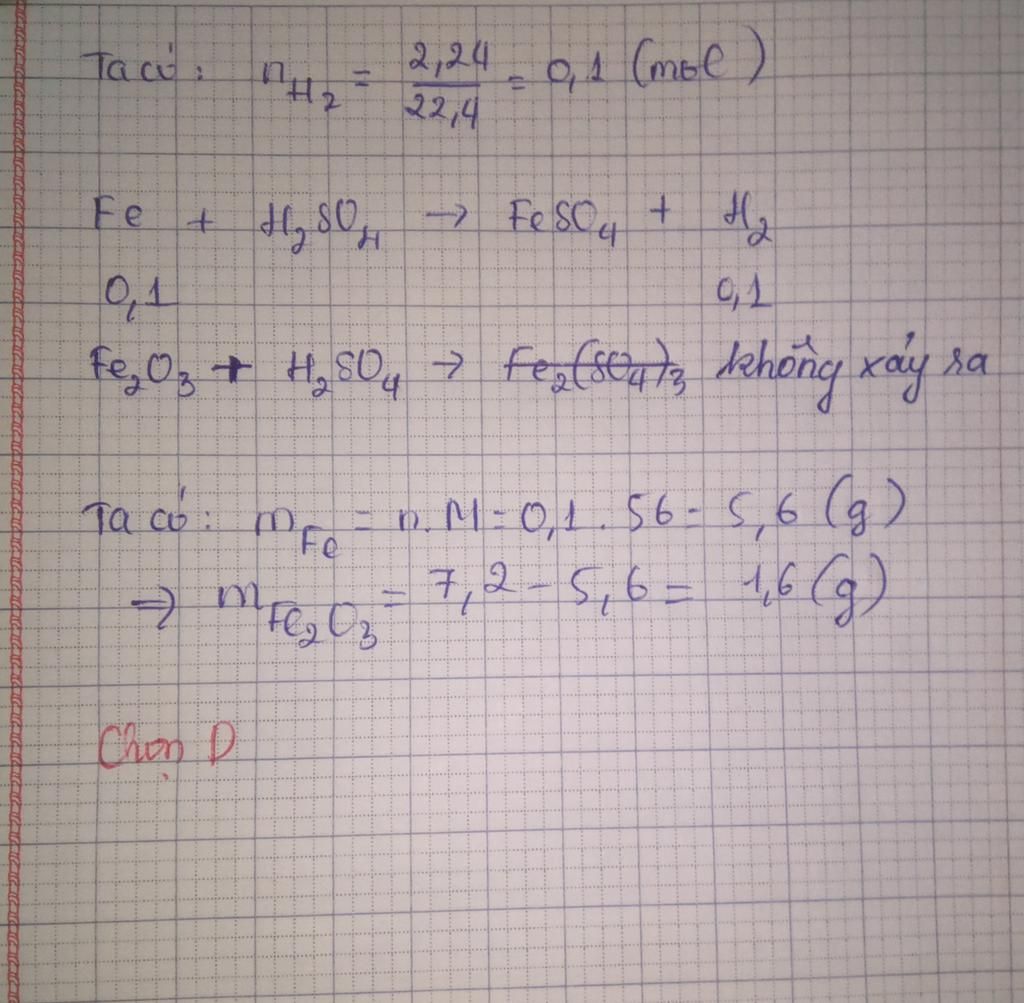 Ta có: nH₂ = 2,24/22,4 = 0,1 (mol)
Fe + H₂SO₄ → FeSO₄ + H₂
0,1 0,1
Fe₂O₃ + H₂SO₄ → Fe₂(SO₄)₃ không xảy ra
Ta có: mFe = n.M = 0,1 . 56 = 5,6 (g)
=> mFe₂O₃ = 7,2 - 5,6 = 1,6 (g)
Chọn D